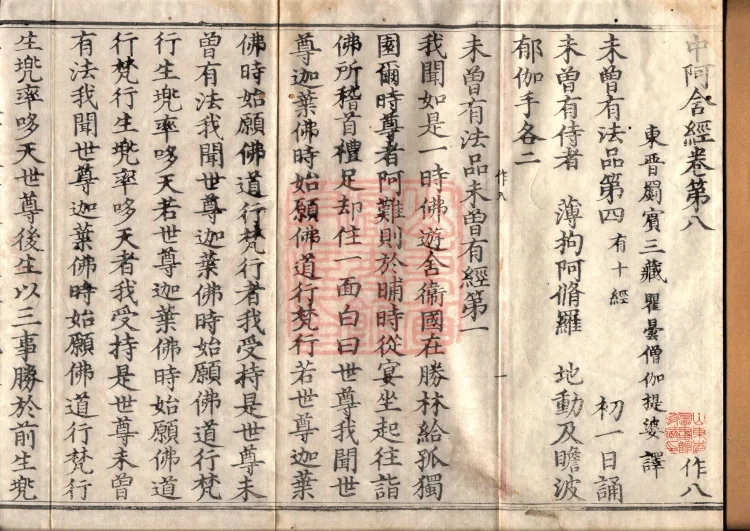 中阿含經卷第八　作八
東晉罽賓三藏瞿曇僧伽提婆譯
未曾有法品第四有十經　初一日誦
未曾有侍者　薄拘阿脩羅　地動及瞻波
郁伽手各二
未曾有法品未曾有經第一
我聞如是一時佛遊舍衛國在勝林給孤獨
園爾時尊者阿難則於晡時從宴坐起往詣
佛所稽首禮足却住一面白曰世尊我聞世
尊迦葉佛時始願佛道行梵行若世尊迦葉
佛時始願佛道行梵行者我受持是世尊未
曾有法我聞世尊迦葉佛時始願佛道行梵
行生兜率哆天若世尊迦葉佛時始願佛道
行梵行生兜率哆天者我受持是世尊未曾
有法我聞世尊迦葉佛時始願佛道行梵行
生兜率哆天世尊後生以三事勝於前生兜
作八
一